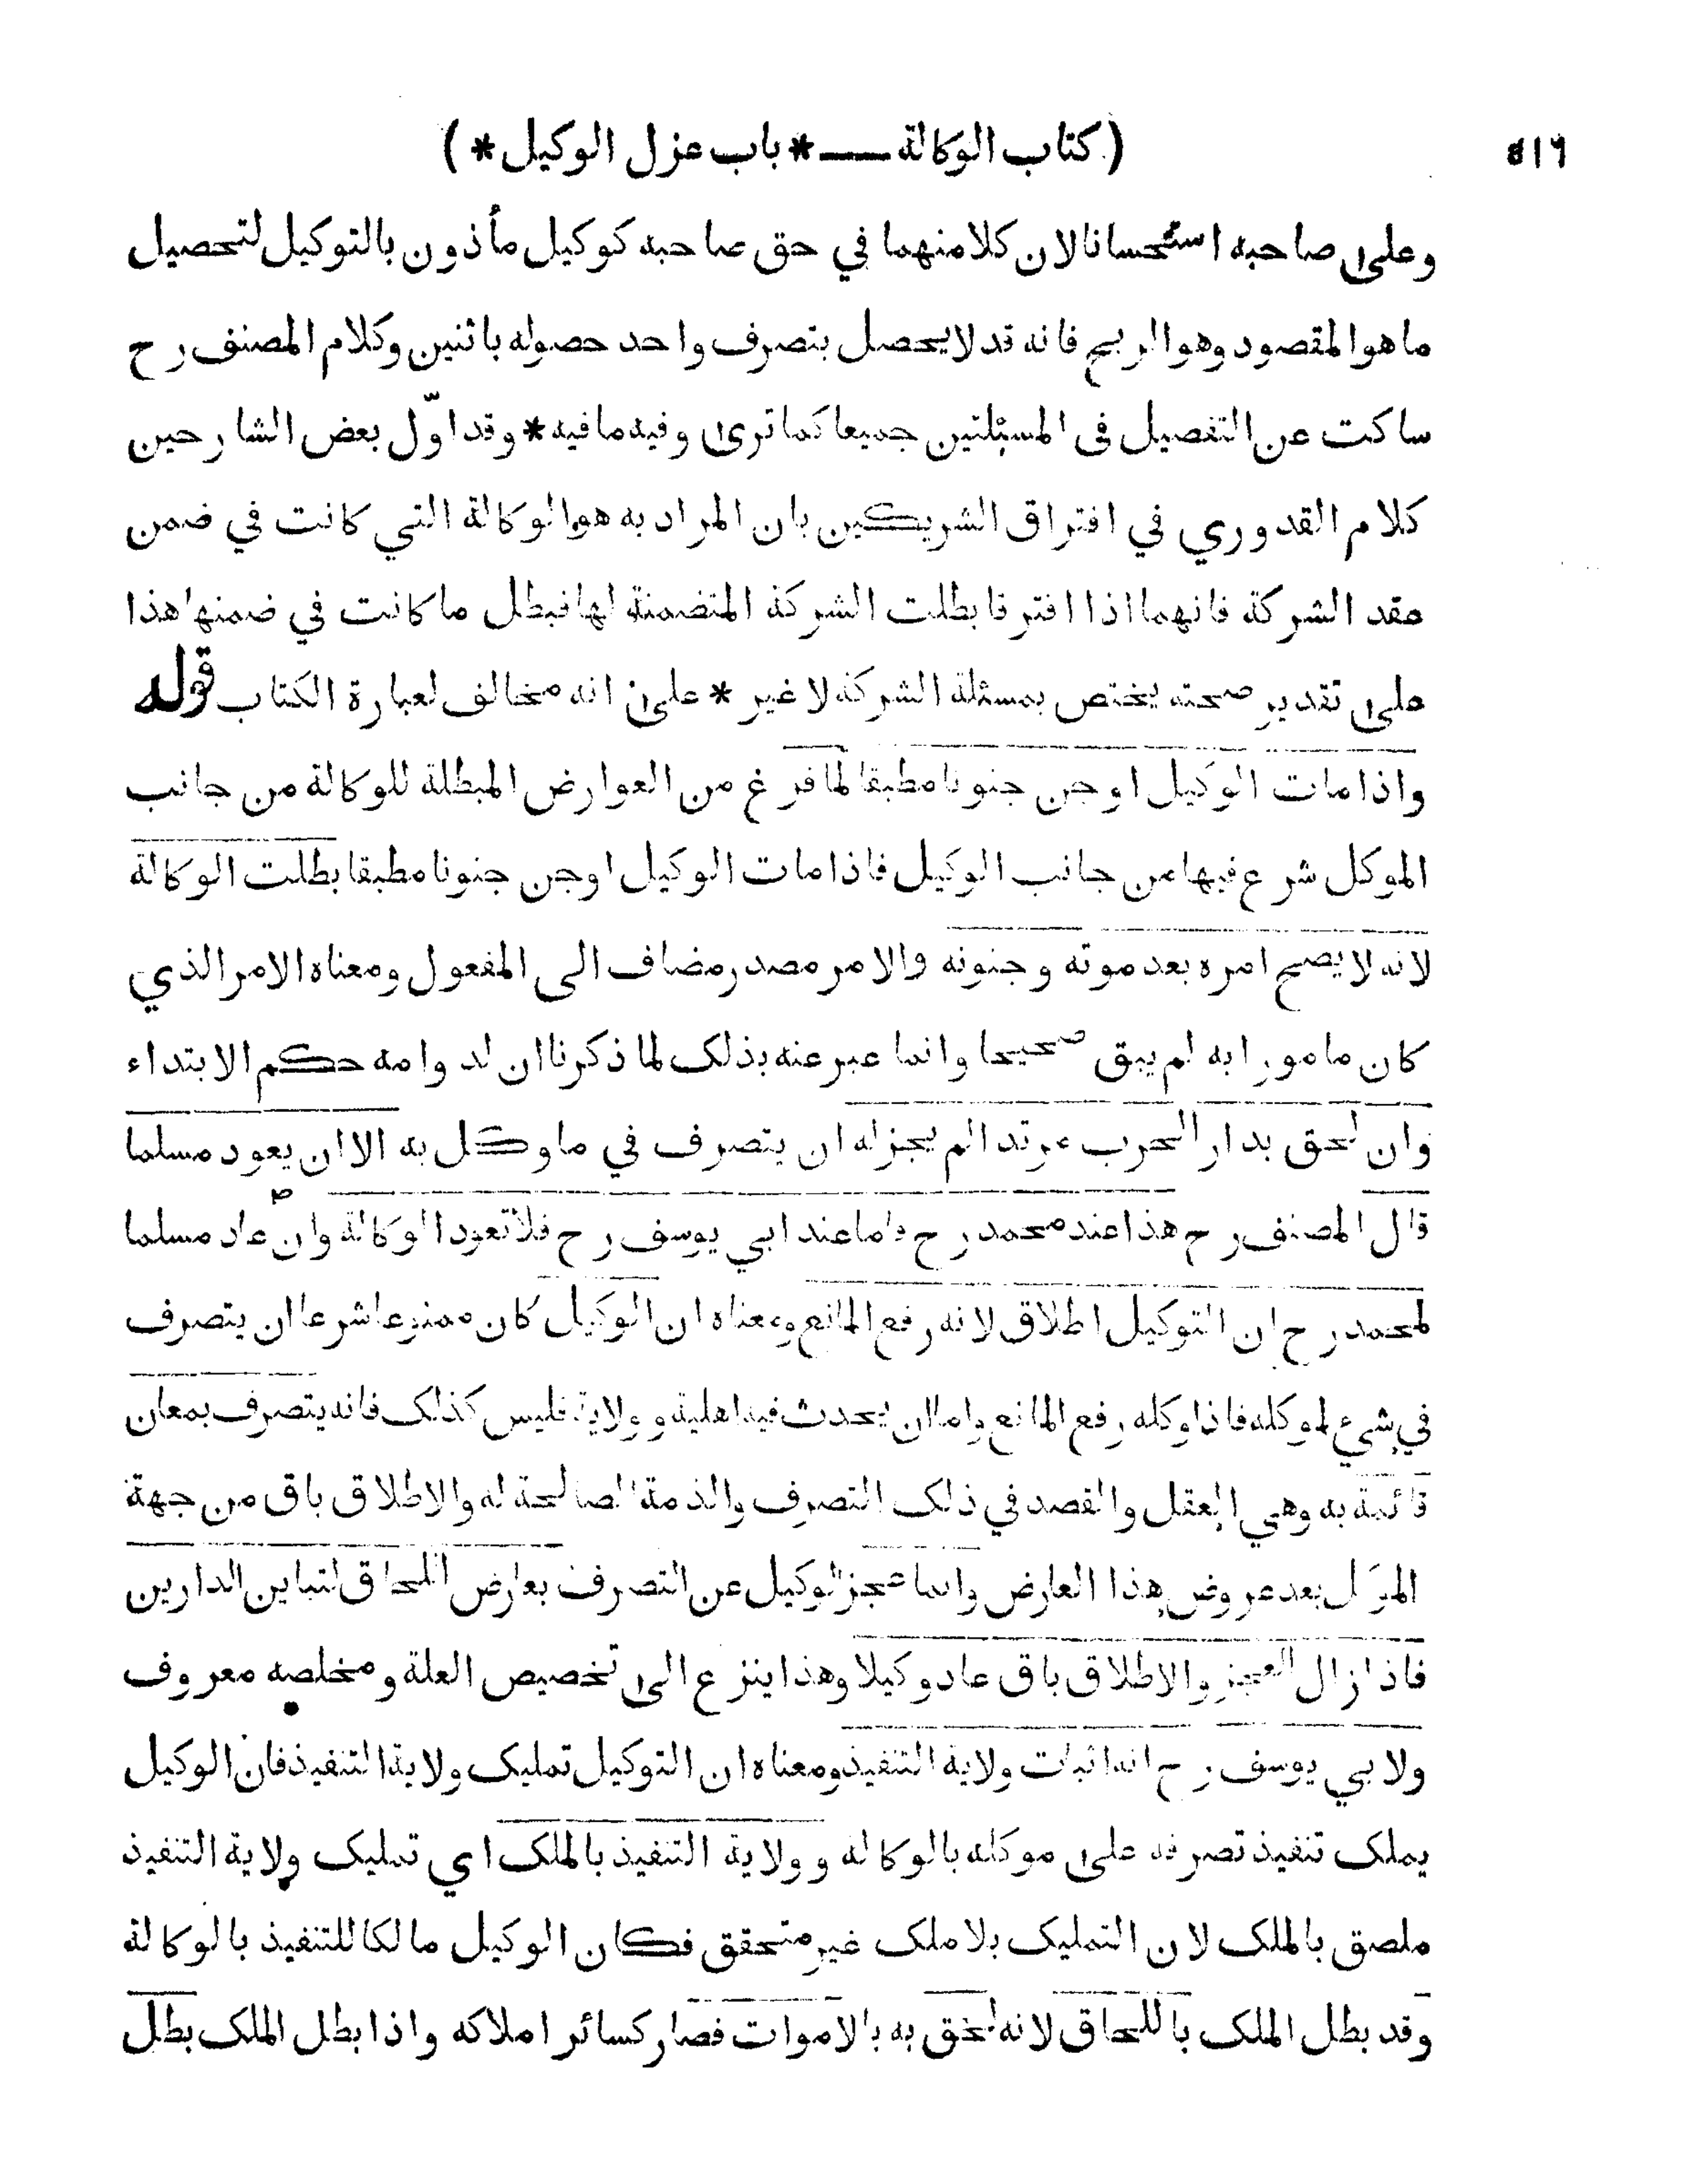 (كتاب الوكالة — * باب عزل الوكيل *)
وعلى صاحبه استحسانا لان كلا منهما في حق صاحبه كوكيل مأذون بالتوكيل لتحصيل
ما هو المقصود وهو الربح فانه قد لا يحصل بتصرف واحد حصوله باثنين وكلام المصنف رح
ساكت عن التفصيل في المسئلتين جميعا كما ترى وفيه ما فيه * وقد اوّل بعض الشارحين
كلام القدوري في افتراق الشريكين بان المراد به هو الوكالة التي كانت في ضمن
عقد الشركة فانهما اذا افترقا بطلت الشركة المتضمنة لها فبطل ما كانت في ضمنها هذا
على تقدير صحته يختص بمسئلة الشركة لا غير * على انه مخالف لعبارة الكتاب قوله
واذا مات الوكيل او جن جنونا مطبقا لما فرغ من العوارض المبطلة للوكالة من جانب
الموكل شرع فيها من جانب الوكيل فاذا مات الوكيل او جن جنونا مطبقا بطلت الوكالة
لانه لا يصح امره بعد موته وجنونه والامر مصدر مضاف الى المفعول ومعناه الامر الذي
كان مامورا به لم يبق صحيحا وانما عبر عنه بذلك لما ذكرنا ان لدوامه حكم الابتداء
وان لحق بدار الحرب مرتدا لم يجز له ان يتصرف في ما وكل به الا ان يعود مسلما
قال المصنف رح هذا عند محمد رح واما عند ابي يوسف رح فلا تعود الوكالة وان عاد مسلما
لمحمد رح ان التوكيل اطلاق لانه رفع المانع ومعناه ان الوكيل كان ممنوعا شرعا ان يتصرف
في شيء لموكله فاذا وكله رفع المانع واما ان يحدث فيه اهلية وولاية فليس كذلك فانه يتصرف بمعان
قائمة به وهي العقل والقصد في ذلك التصرف والذمة الصالحة له والاطلاق باق من جهة
الموكل بعد عروض هذا العارض وانما عجز الوكيل عن التصرف بعارض اللحاق لتباين الدارين
فاذا زال العجز والاطلاق باق عاد وكيلا وهذا ينزع الى تخصيص العلة ومخلصه معروف
ولابي يوسف رح انه اثبات ولاية التنفيذ ومعناه ان التوكيل تمليك ولاية التنفيذ فان الوكيل
يملك تنفيذ تصرفه على موكله بالوكالة وولاية التنفيذ بالملك اي تمليك ولاية التنفيذ
ملصق بالملك لان التمليك بلا ملك غير متحقق فكان الوكيل مالكا للتنفيذ بالوكالة
وقد بطل الملك باللحاق لانه لحق به بالاموات فصار كسائر املاكه واذا بطل الملك بطل